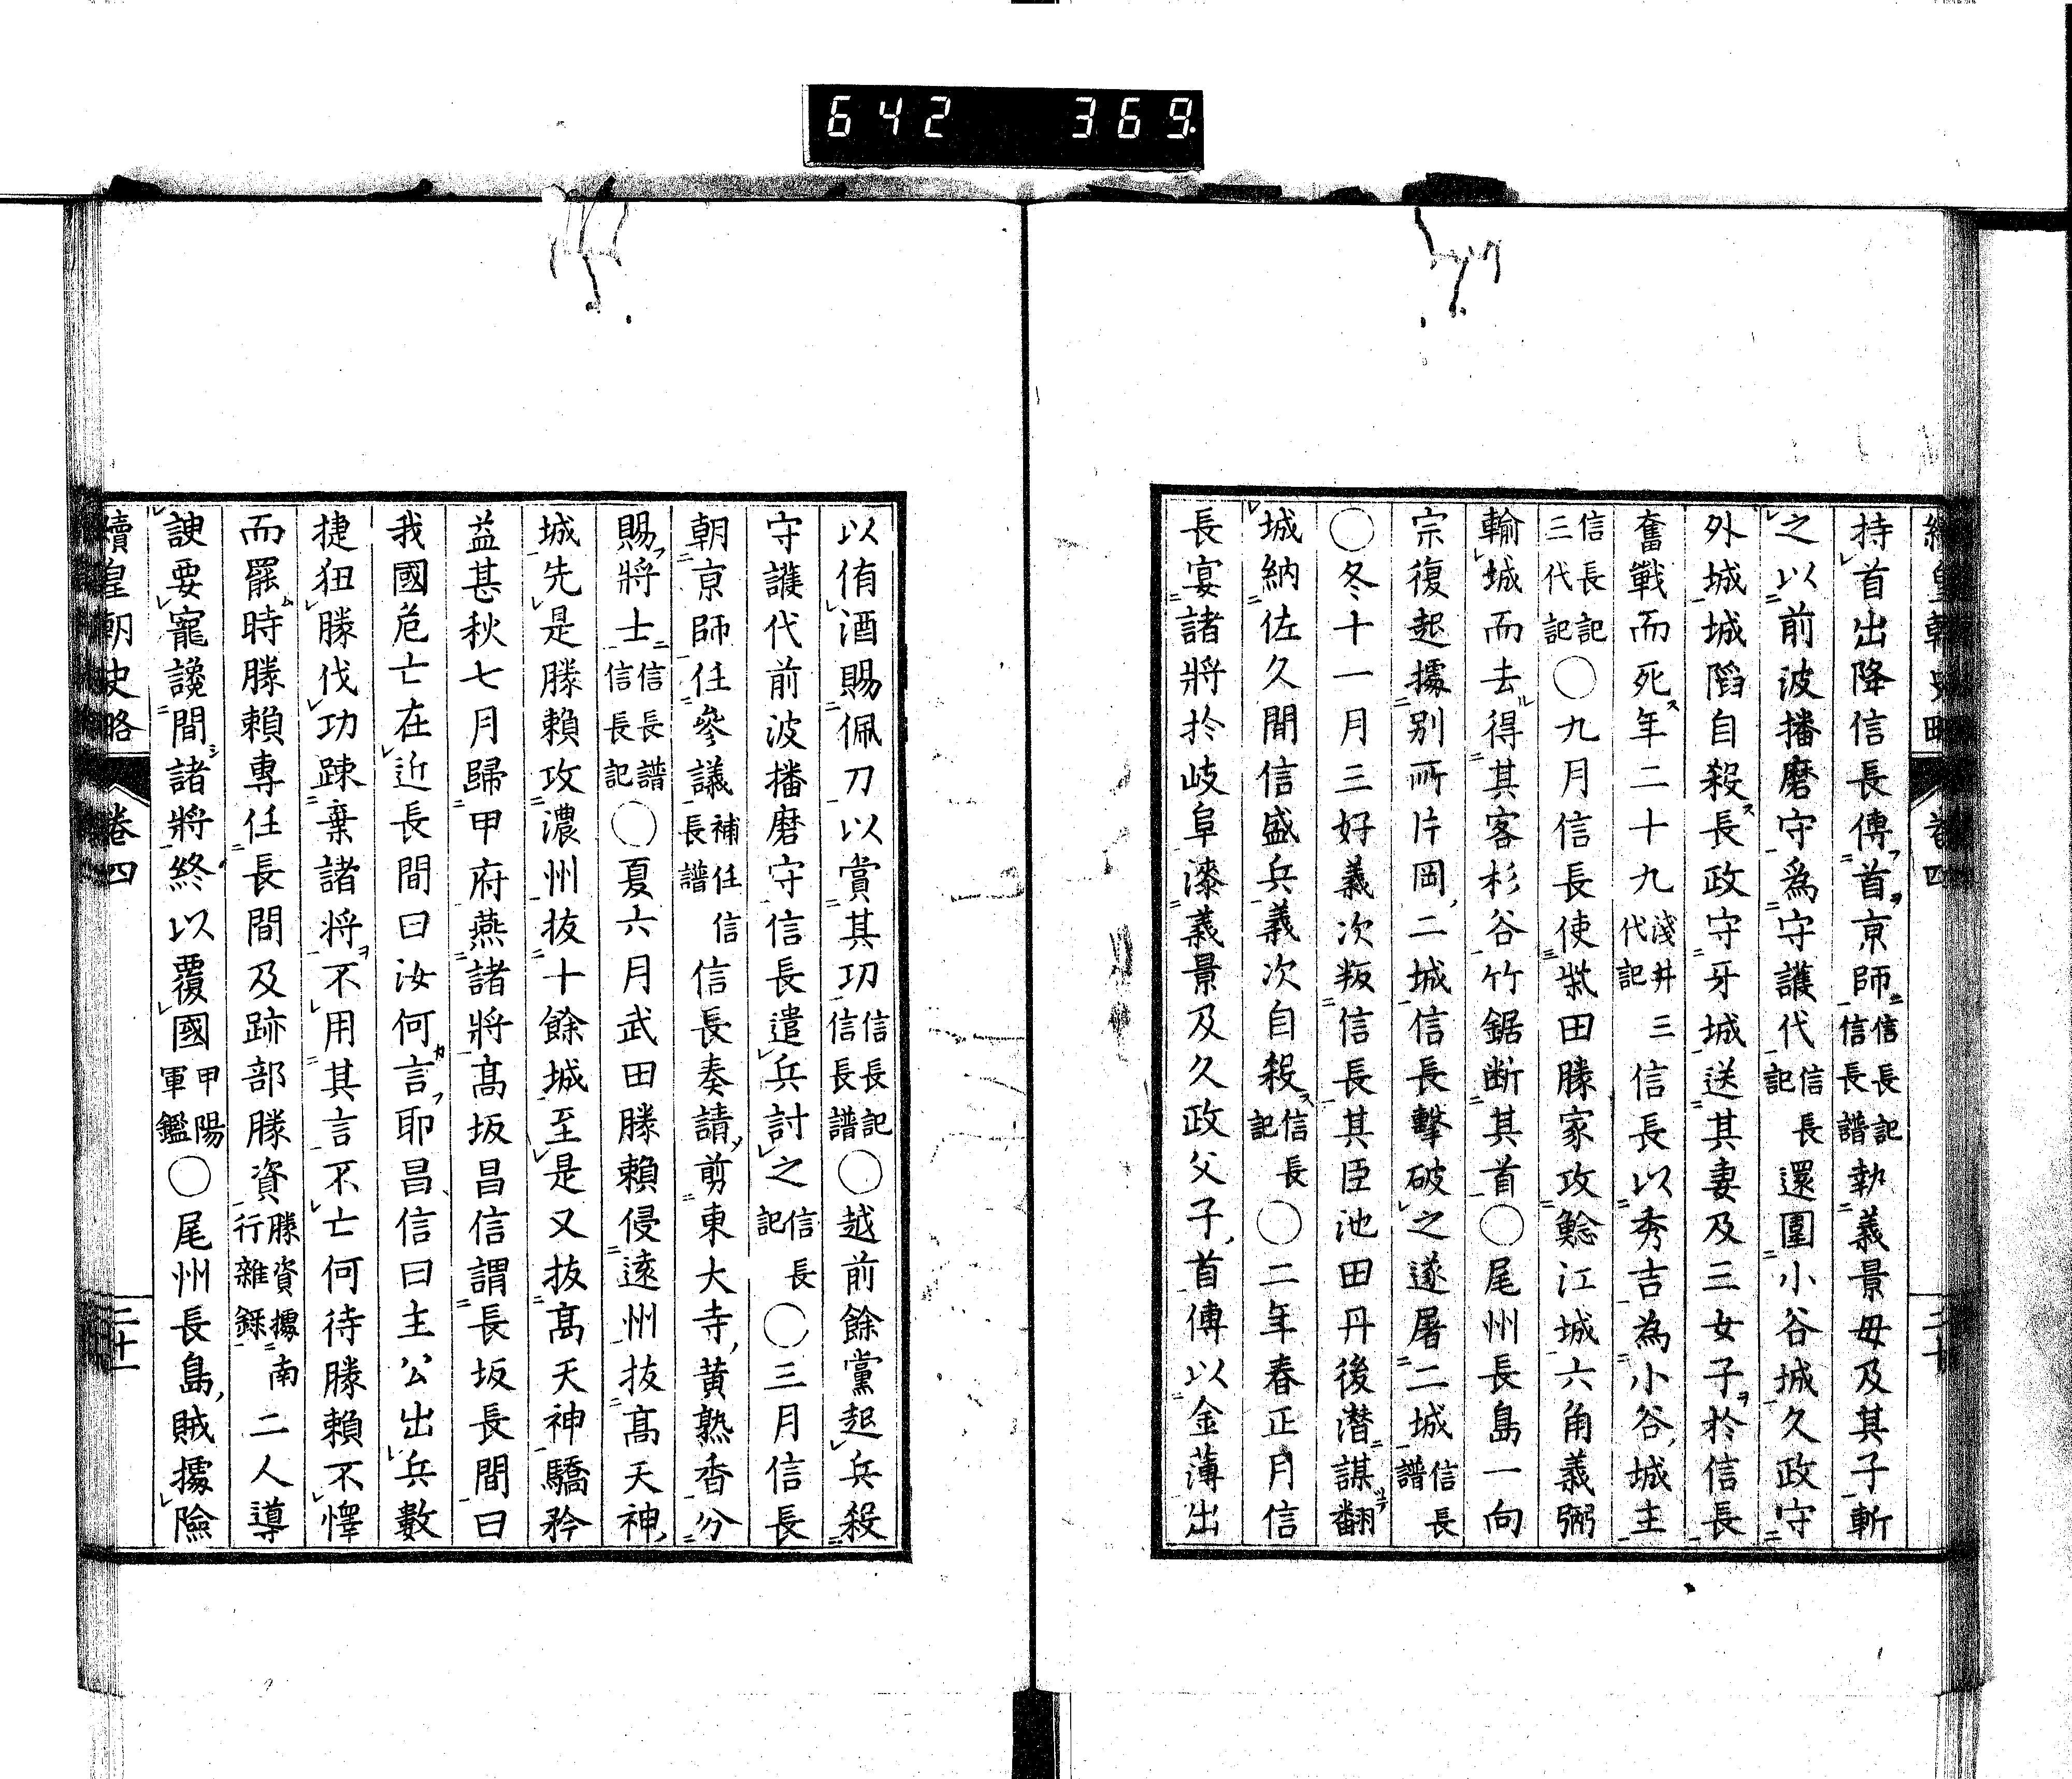 642 369.
續皇朝史略 卷四 二十
持首出降信長傳首京師信長記信長譜執義景母及其子斬
之以前波播磨守爲守護代信長記還圍小谷城久政守
外城城陷自殺長政守牙城送其妻及三女子於信長
奮戰而死年二十九淺井三代記信長以秀吉為小谷城主
信長記三代記〇九月信長使柴田勝家攻鯰江城六角義弼
輸城而去得其客杉谷竹鋸断其首〇尾州長島一向
宗復起據别所片岡二城信長擊破之遂屠二城信長譜
〇冬十一月三好義次叛信長其臣池田丹後潛謀翻
城納佐久間信盛兵義次自殺信長記〇二年春正月信
長宴諸將於岐阜漆義景及久政父子首傅以金薄出
以侑酒賜佩刀以賞其功信長記信長譜〇越前餘黨起兵殺
守護代前波播磨守信長遣兵討之信長記〇三月信長
朝京師任參議補任信長譜信長奏請剪東大寺黄熟香分
賜將士信長譜信長記〇夏六月武田勝賴侵遠州拔高天神
城先是勝賴攻濃州拔十餘城至是又拔高天神驕矜
益甚秋七月歸甲府燕諸將高坂昌信謂長坂長間曰
我國危亡在近長間曰汝何言耶昌信曰主公出兵數
捷狃勝伐功疎棄諸将不用其言不亡何待勝賴不懌
而罷時勝賴專任長間及跡部勝資勝資據南行雜錄二人導
諛要寵讒間諸將終以覆國甲陽軍鑑〇尾州長島賊據險
續皇朝史略 卷四 二十一